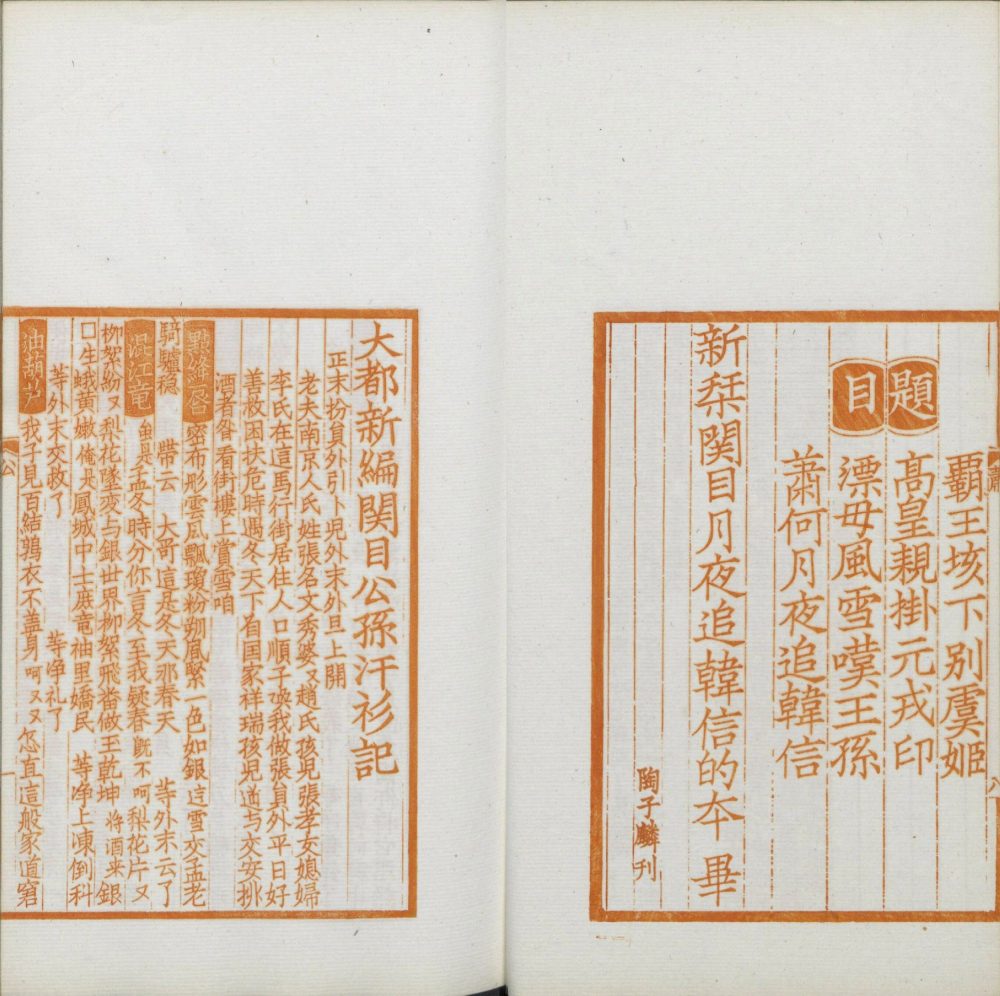 霸王垓下別虞姬
高皇親掛元戎印
漂母風雪嘆王孫
蕭何月夜追韓信
題目
新栞関目月夜追韓信的夲 畢
陶子麟刊
大都新編関目公孫汗衫記
正末扮員外引卜児外末外旦上開
老夫南京人氏姓張名文秀婆又趙氏孩児張孝友媳婦
李氏在這馬行街居住人口順子喚我做張員外平日好
善敉困扶危時遇冬天下着国家祥瑞孩児道与交安排
酒肴昝看街樓上賞雪咱
點絳唇 密布彤雲凨飄瓊粉朔凨緊一色如銀这雪交孟老
騎驢稳 帶云 大哥這是冬天那春天 等外末云了
混江竜 虽是孟冬時分你言冬至我疑春既不呵梨花片又
柳絮紛又梨花墜变与銀世界柳絮飛番做王乾坤 将酒来銀
口生蛾黄嫩俺是鳳城中士庶竜袖里嬌民 等净上凍倒科
等外末交救了 等净礼了
油葫芦 我子見百結鶉衣不盖身呵又又怎直這般家道窘